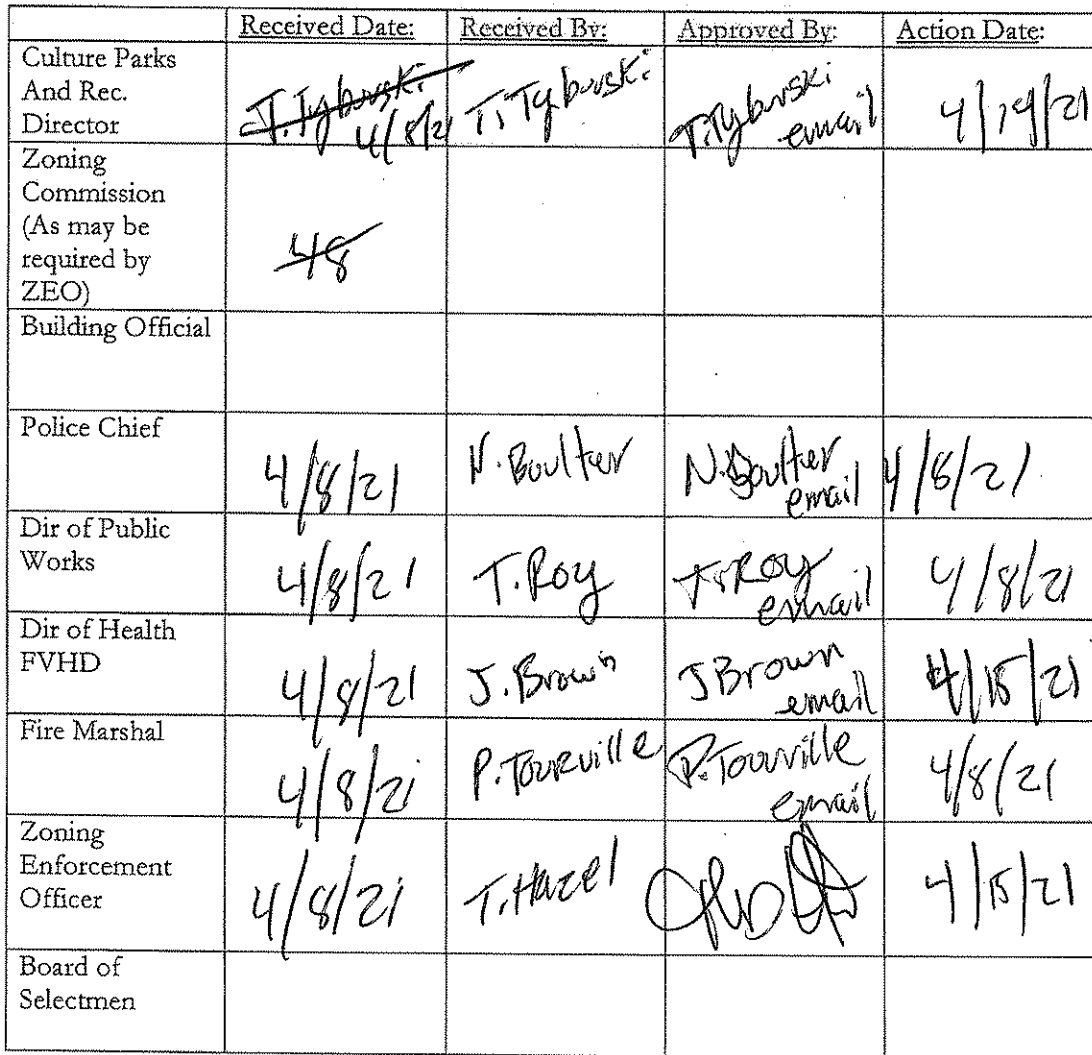 Received Date: Received By: Approved By: Action Date:
Culture Parks
And Rec.
Director
T. Tyburski
4/8/21
T. Tyburski
T. Tyburski
email
4/19/21
Zoning
Commission
(As may be
required by
ZEO)
48
Building Official
Police Chief
4/8/21
N. Boulter
N. Boulter
email
4/8/21
Dir of Public
Works
4/8/21
T. Roy
T. Roy
email
4/8/21
Dir of Health
FVHD
4/8/21
J. Brown
J Brown
email
4/15/21
Fire Marshal
4/8/21
P. Tourville
P. Tourville
email
4/8/21
Zoning
Enforcement
Officer
4/8/21
T. Hazel
4/15/21
Board of
Selectmen